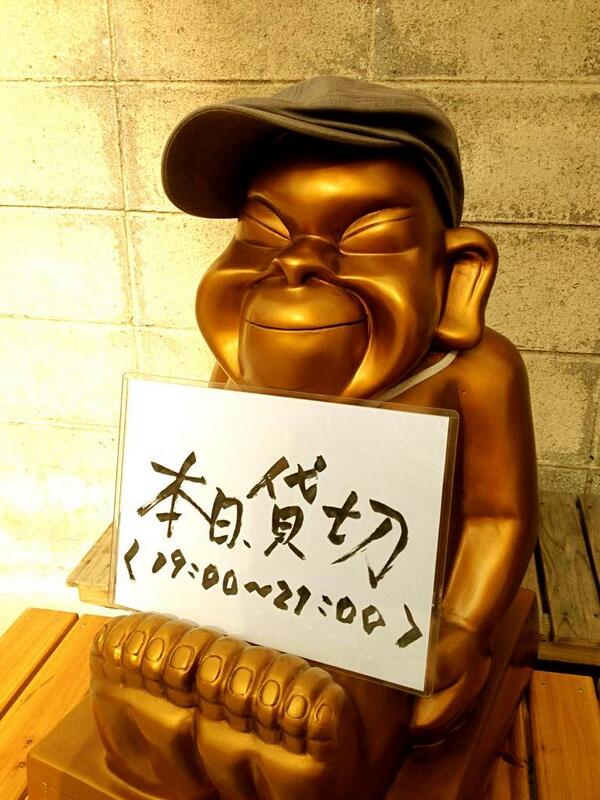 本日、貸切
<19:00~21:00>